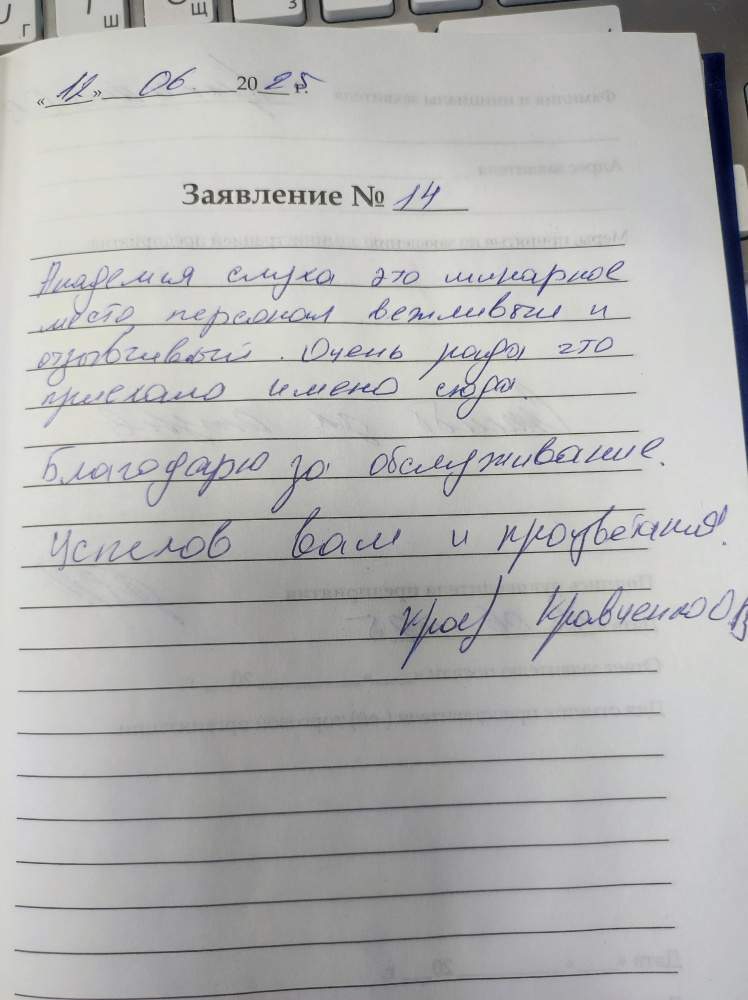 «12» 06. 2025 г.
Заявление № 14
Академия слуха это шикарное
место персонал вежливый и
отзывчивый. Очень рада что
приехала имено сюда.
Благодарю за обслуживание.
Успехов вам и процветания!
Крав Кравченко О.В